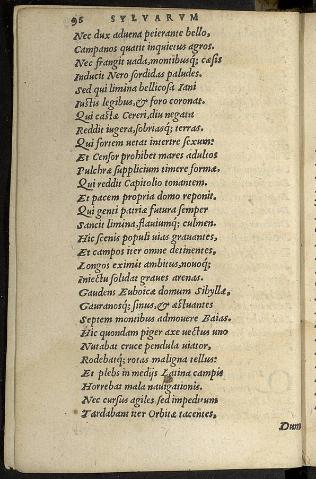 96 SYLVARVM
Nec dux aduena peierante bello,
Campanos quatit inquietus agros.
Nec frangit uada, montibusq; cæsis
Inducit Nero sordidas paludes.
Sed qui limina bellicosa Iani
Iustis legibus, & foro coronat.
Qui castæ Cereri, diu negata
Reddit iugera, sobriasq; terras.
Qui fortem uetat interire sexum:
Et Censor prohibet mares adultos
Pulchræ supplicium timere formæ.
Qui reddit Capitolio tonantem.
Et pacem propria domo reponit.
Qui genti patriæ futura semper
Sancti limina, flauiumq; culmen.
Hic scenis populi uias grauantes,
Et campos iter omne detinentes,
Longos eximit ambitus, nouoq;
Iniectu solidat graues arenas.
Gaudens Euboicæ domum Sibyllæ,
Gauranosq; sinus, & æstuantes
Septem montibus admouere Baias.
Hic quondam piger axe uectus uno
Nutabat cruce pendula uiator,
Rodebatq; rotas maligna tellus:
Et plebs in medijs Latina campis
Horrebat mala nauigationis.
Nec cursus agiles sed impeditum
Tardabant iter Orbitæ tacentes,
Dum